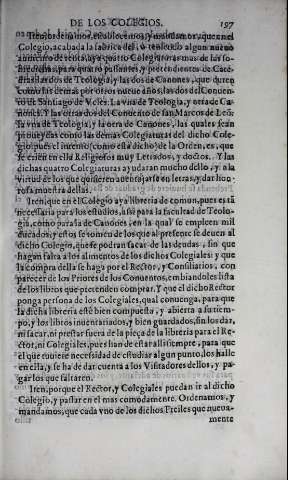 DE LOS COLEGIOS. 197
Iten, ordenamos, establecemos, y mandamos, que en el
Colegio, acabada la fabrica del, ò teniendo algun nueuo
aumento de renta, aya quatro Colegiaturas mas de las so-
bredichas, para quatro passantes, y pretendientes de Cate-
dras: las dos de Teologia, y las dos de Canones, que duren
como las demas por otros nueue años, las dos del Conuen-
to de Santiago de Vcles: La vna de Teologia, y otra de Ca-
nones. Y las otras dos del Conuento de san Marcos de Leõ:
la vna de Teologia, y la otra de Canones, las quales sean
proueydas como las demas Colegiaturas del dicho Cole-
gio, pues el intento (como està dicho) de la Orden, es, que
se crien en ella Religiosos muy Letrados, y doctos. Y las
dichas quatro Colegiaturas ayudaràn mucho dello, y a la
virtud de los que quisieren auentajarse en letras, y dar ho-
rosa muestra dellas.
Iten, que en el Colegio aya libreria de comun, pues es tã
necessaria para los estudios, assi para la facultad de Teolo-
gia, como para la de Canones, en la qual se empleen mil
ducados, y estos se tomen de los que al presente se deuen al
dicho Colegio, que se podran sacar de las deudas, sin que
hagan falta a los alimentos de los dichos Colegiales: y que
la compra della se haga por el Rector, y Consiliarios, con
parecer de los Priores de los Conuentos, embiandoles lista
de los libros que pretenden comprar. Y que el dicho Rector
ponga persona de los Colegiales, qual conuenga, para que
la dicha libreria estè bien compuesta, y abierta a su tiem-
po, y los libros inuentariados, y bien guardados, sin los dar,
ni sacar, ni prestar fuera de la pieça de la libreria para el Re-
ctor, ni Colegiales, pues han de estar alli siempre, para que
el que tuuiere necessidad de estudiar algun punto, los halle
en ella, y se ha de dar cuenta a los Visitadores dellos, y pa-
gar los que faltaren.
Iten, porque el Rector, y Colegiales puedan ir al dicho
Colegio, y passar en el mas comodamente. Ordenamos, y
mandamos, que cada vno de los dichos Freiles que nueua-
mente